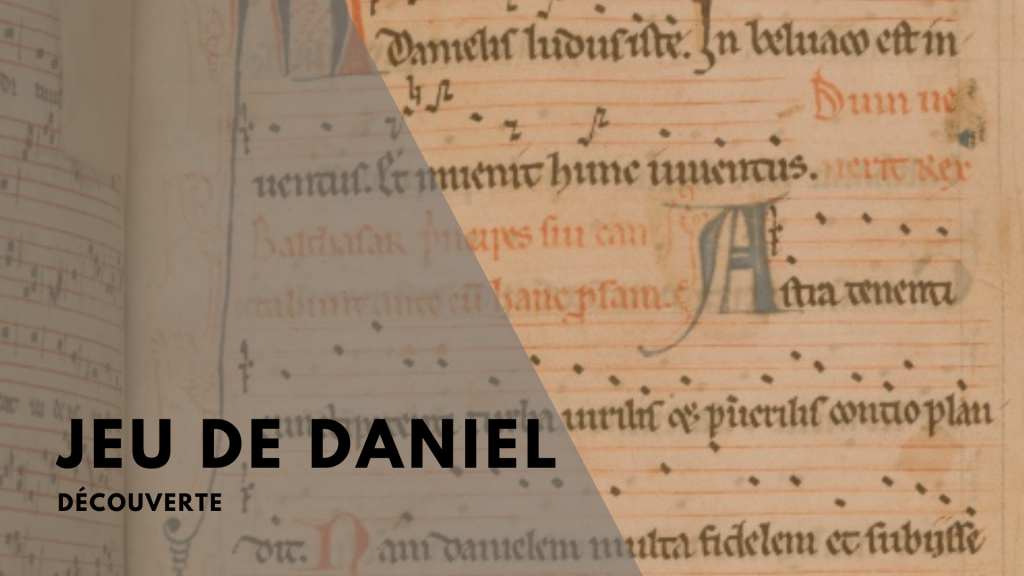 Danielis ludus iste. In beluaco est in
Dum ue
uentus. Et inuenit hunc iuuentus.
nerit Rex
Balthasar principes sui can
tabunt ante eū hanc psam.
Astra tenenti
cunctipotenti turba uirilis et puerilis contio plau
JEU DE DANIEL
DÉCOUVERTE
dit. Nam danielem multa fidelem et subiisse